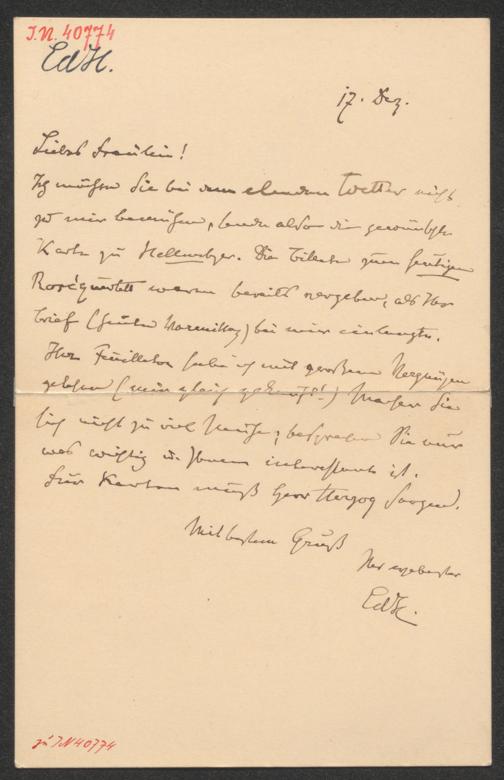 I.N. 40774
EdH.
17. Dez.
Liebes Fräulein!
Ich möchte Sie bei dem elenden Wetter nicht
zu mir bemühen, sende also die gewünschte
Karte zu Hellmesberger. Die Billete zum heutigen
Rosé quartett waren bereits vergeben, als Ihr
Brief (heute Vormittag) bei mir einlangte.
Ihr Feuilleton habe ich mit großem Vergnügen
gelesen (nur gleich !) Machen Sie
sich nicht zu viel Mühe; besprechen Sie nur
was wichtig u. Ihnen interessant ist.
Für Karten muß Herr Herzog sorgen.
Mit bestem Gruß
Ihr ergebenster
EdH.
zu I.N. 40774